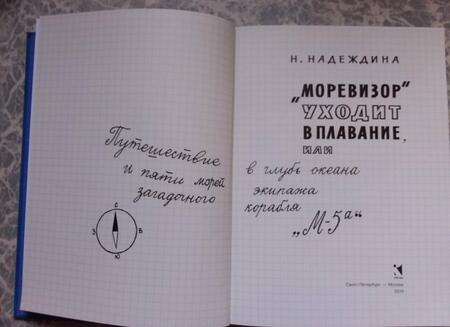 Путешествие
и пяти морей
загадочного
С
З
В
Ю
Н. НАДЕЖДИНА
„МОРЕВИЗОР“
УХОДИТ
В ПЛАВАНИЕ,
ИЛИ
в глубь океана
экипажа
корабля
„М-5а“
Санкт-Петербург — Москва